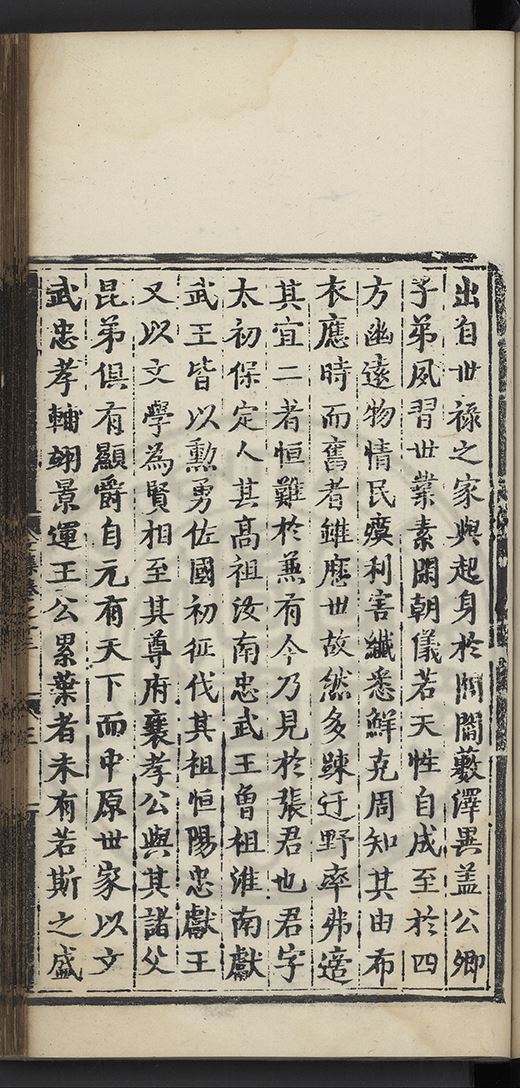 出自世禄之家與起身於閭閻藪澤異盖公卿
子弟風習世業素閑朝儀若天性自成至於四
方幽遠物情民瘼利害纎悉鮮克周知其由布
衣應時而奮者雖歷世故然多踈迂野率弗適
其宜二者恒難於兼有今乃見於張君也君字
太初保定人其髙祖汝南忠武王曾祖淮南獻
武王皆以勳勇佐國初征伐其祖恒陽忠獻王
又以文學為賢相至其尊府襄孝公與其諸父
昆弟俱有顯爵自元有天下而中原世家以文
武忠孝輔翊景運王公累葉者未有若斯之盛